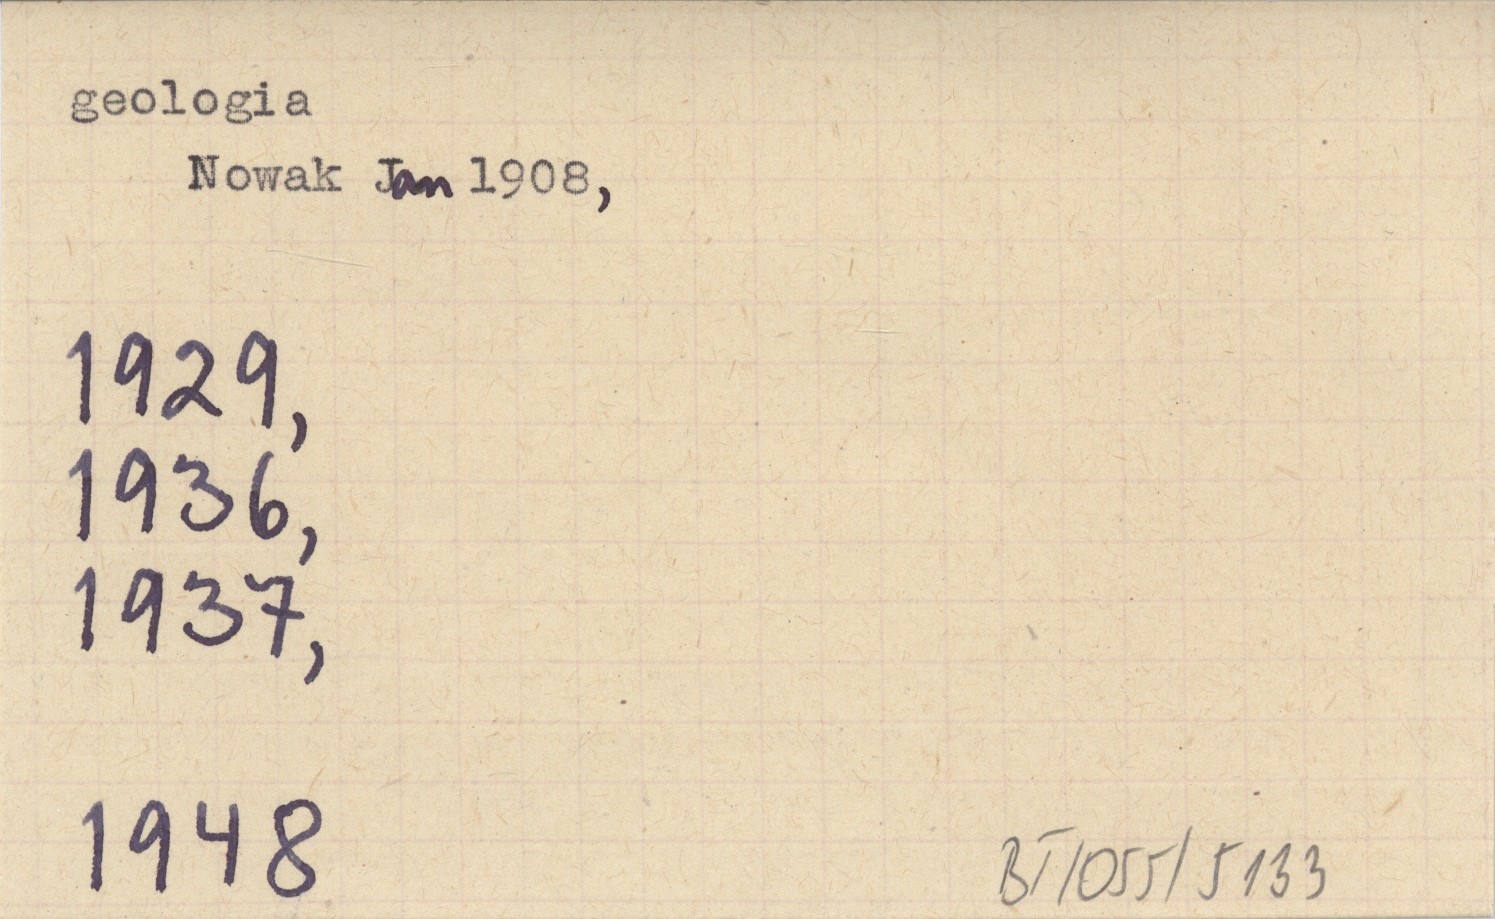 geologia
Nowak Jan 1908,
1929,
1936,
1937,
1948
BT/055/5133